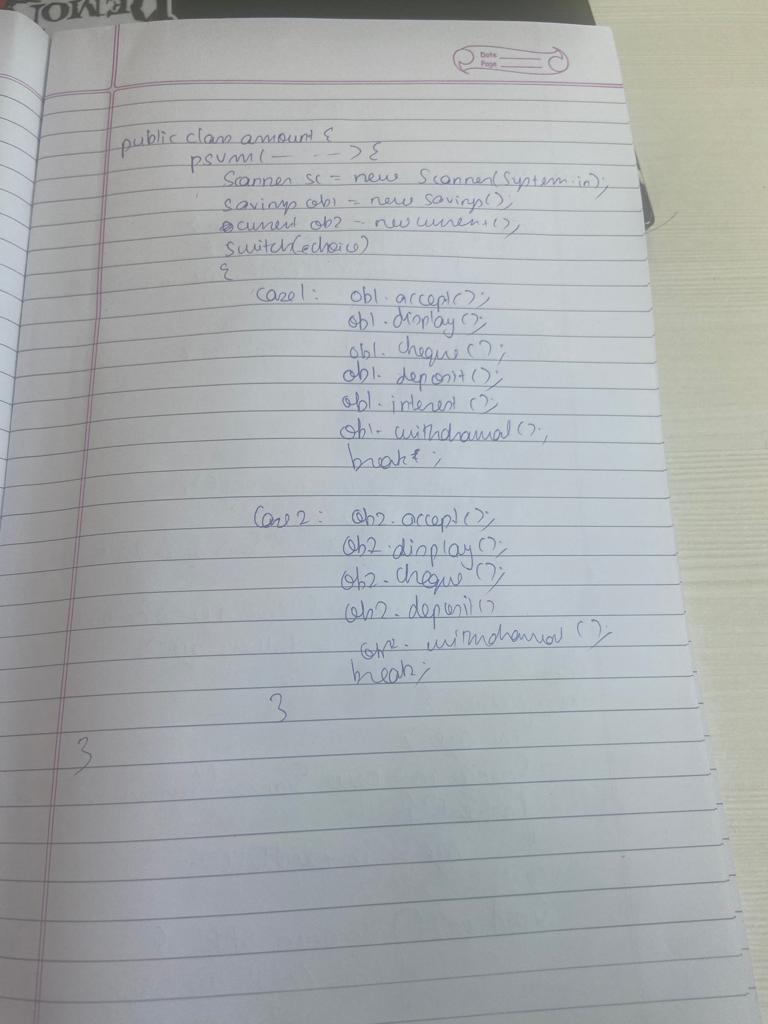 DEMON
Date
Page
public class amount {
psvm(— - - ->) {
Scanner sc = new Scanner(System.in);
savings ob1 = new savings();
current ob2 = new current();
switch(choice)
{
Case1: ob1.accept();
ob1.display();
ob1.cheque();
ob1.deposit();
ob1.interest();
ob1.withdrawal();
break;
Case 2: ob2.accept();
ob2.display();
ob2.cheque();
ob2.deposit()
ob2.withdrawal();
break;
}
}